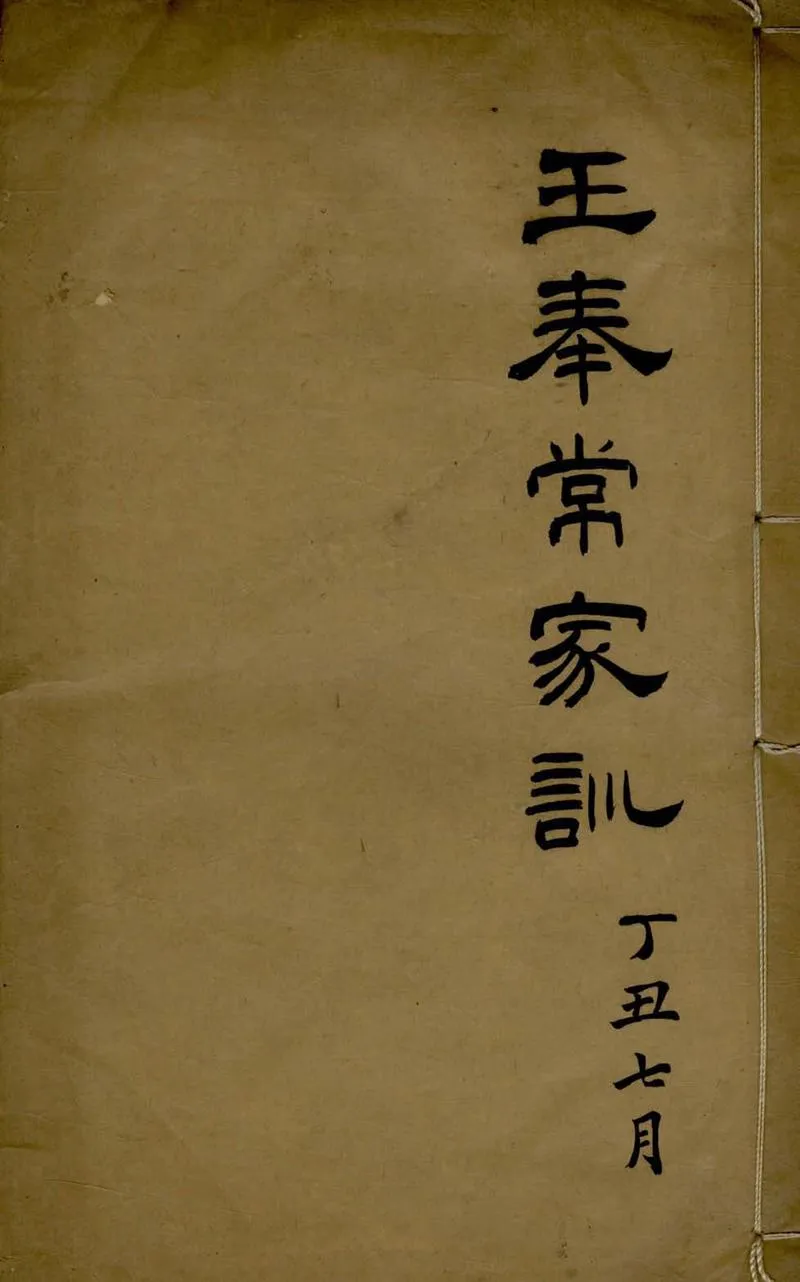 王奉常家訓
丁丑七月